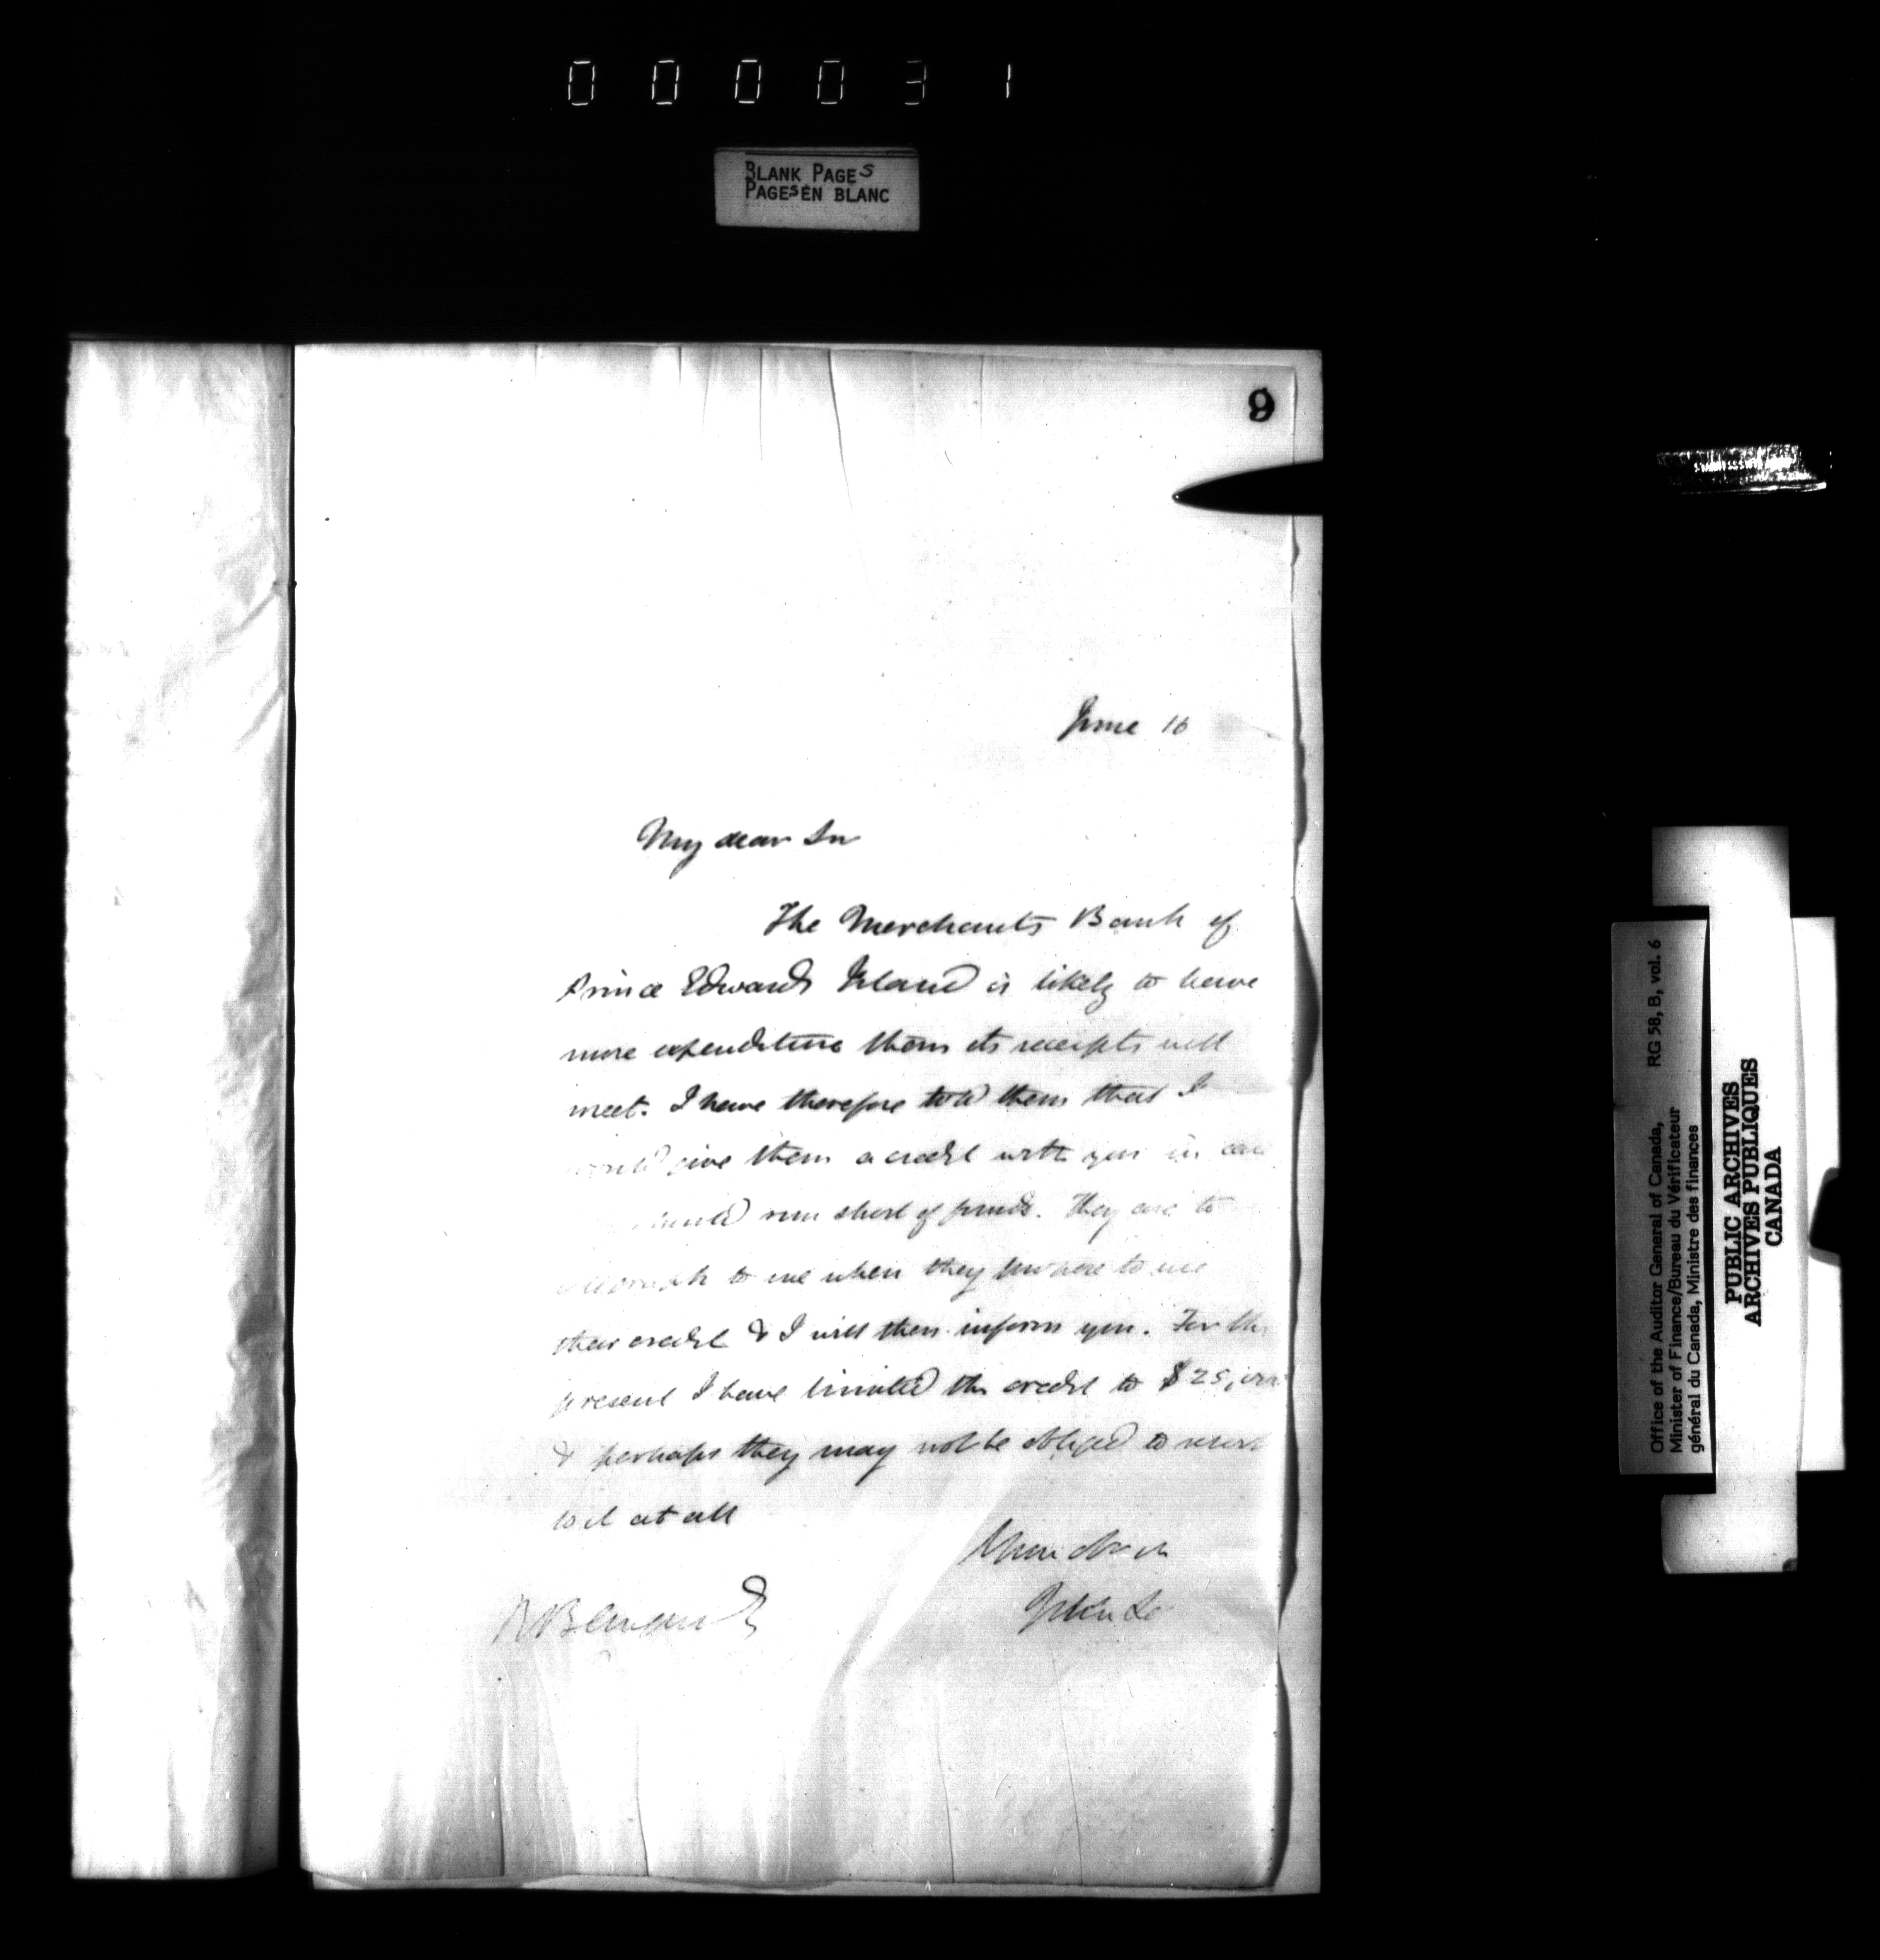 000031
BLANK PAGES
PAGES EN BLANC
9
June 16
My dear Sir
The Merchants Bank of
Prince Edwards Island is likely to have
more expenditure than its receipts will
meet. I have therefore told them that I
would give them a credit with you in case
should run short of funds. They are to
telegraph to me when they propose to use
their credit & I will then inform you. For the
present I have limited the credit to $25,000
& perhaps they may not be obliged to resort
to it at all
Yours
Office of the Auditor General of Canada,
Minister of Finance/Bureau du Vérificateur
général du Canada, Ministre des finances
RG 58, B, vol. 6
PUBLIC ARCHIVES
ARCHIVES PUBLIQUES
CANADA